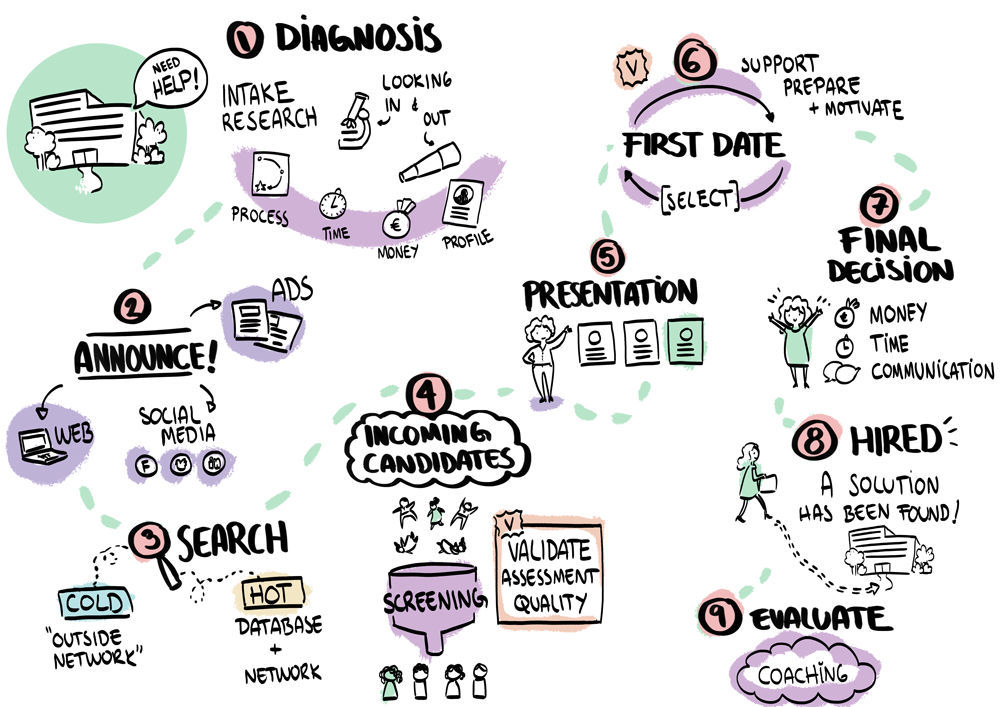 NEED
HELP!
1 DIAGNOSIS
INTAKE
RESEARCH
LOOKING
IN &
OUT
PROCESS
TIME
€
MONEY
PROFILE
2
ANNOUNCE!
ADS
WEB
SOCIAL
MEDIA
F
in
3 SEARCH
COLD
"OUTSIDE
NETWORK"
HOT
DATABASE
+
NETWORK
4
INCOMING
CANDIDATES
SCREENING
V
VALIDATE
ASSESSMENT
QUALITY
5
PRESENTATION
V
6
SUPPORT
PREPARE
+ MOTIVATE
FIRST DATE
[SELECT]
7
FINAL
DECISION
€ MONEY
TIME
COMMUNICATION
8 HIRED
A SOLUTION
HAS BEEN FOUND!
9 EVALUATE
COACHING